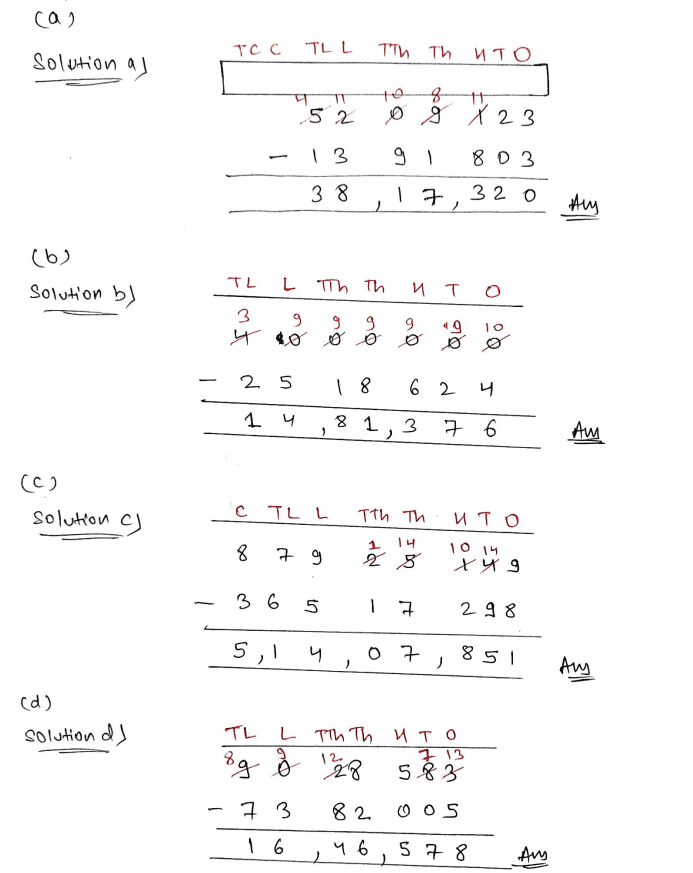 (a)
Solution a)
TC C TL L TTh Th H T O
4 11 10 8 11
5 2 0 9 1 2 3
- 1 3 9 1 8 0 3
3 8 , 1 7 , 3 2 0 Ans
(b)
Solution b)
TL L TTh Th H T O
3 9 9 9 9 9 10
4 0 0 0 0 0 0
- 2 5 1 8 6 2 4
1 4 , 8 1 , 3 7 6 Ans
(c)
Solution c)
C TL L TTh Th H T O
1 14 10 14
8 7 9 2 5 1 4 9
- 3 6 5 1 7 2 9 8
5 , 1 4 , 0 7 , 8 5 1 Ans
(d)
Solution d)
TL L TTh Th H T O
8 9 12 7 13
9 0 2 8 5 8 3
- 7 3 8 2 0 0 5
1 6 , 4 6 , 5 7 8 Ans